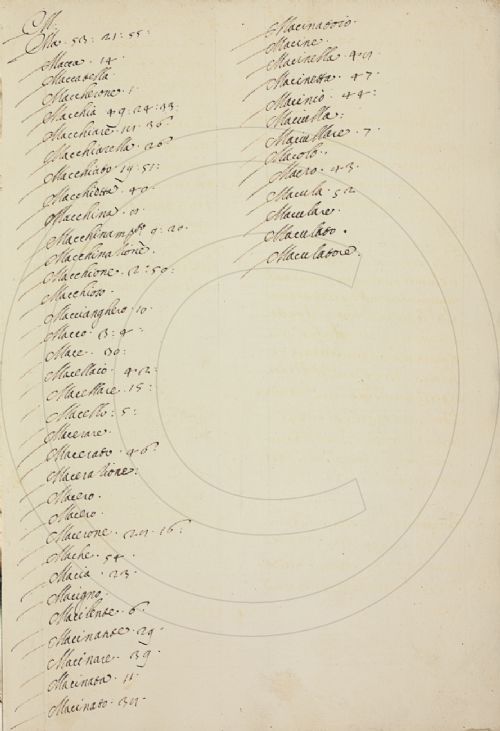 M.
Ma. 53: 21: 55:
Macca. 14.
Maccatella.
Maccherone. 1.
Macchia 49: 24: 33:
Macchiare. 36.
Macchiarella. 26.
Macchiato 19. 51:
Macchietta. 40.
Macchina.
Macchinam.to 20.
Macchinatione.
Macchione. 2: 50:
Macchioso.
Maccianghero. 10.
Macco. 3: 4.
Mace. 30:
Macellaio. 42:
Macellare. 15:
Macello: 5:
Macerare.
Macerato. 46:
Maceratione:
Macero.
Macero.
Macerone. 16:
Mache. 54.
Macia. 23.
Macigno.
Macilente. 6.
Macinante. 29.
Macinare. 39.
Macinata. 11.
Macinato.
Macinatoio.
Macine.
Macinella.
Macinetta. 47.
Macinio. 44:
Maciulla:
Maciullare. 7.
Macolo.
Macro. 43.
Macula. 52.
Maculare.
Maculato.
Maculatore.